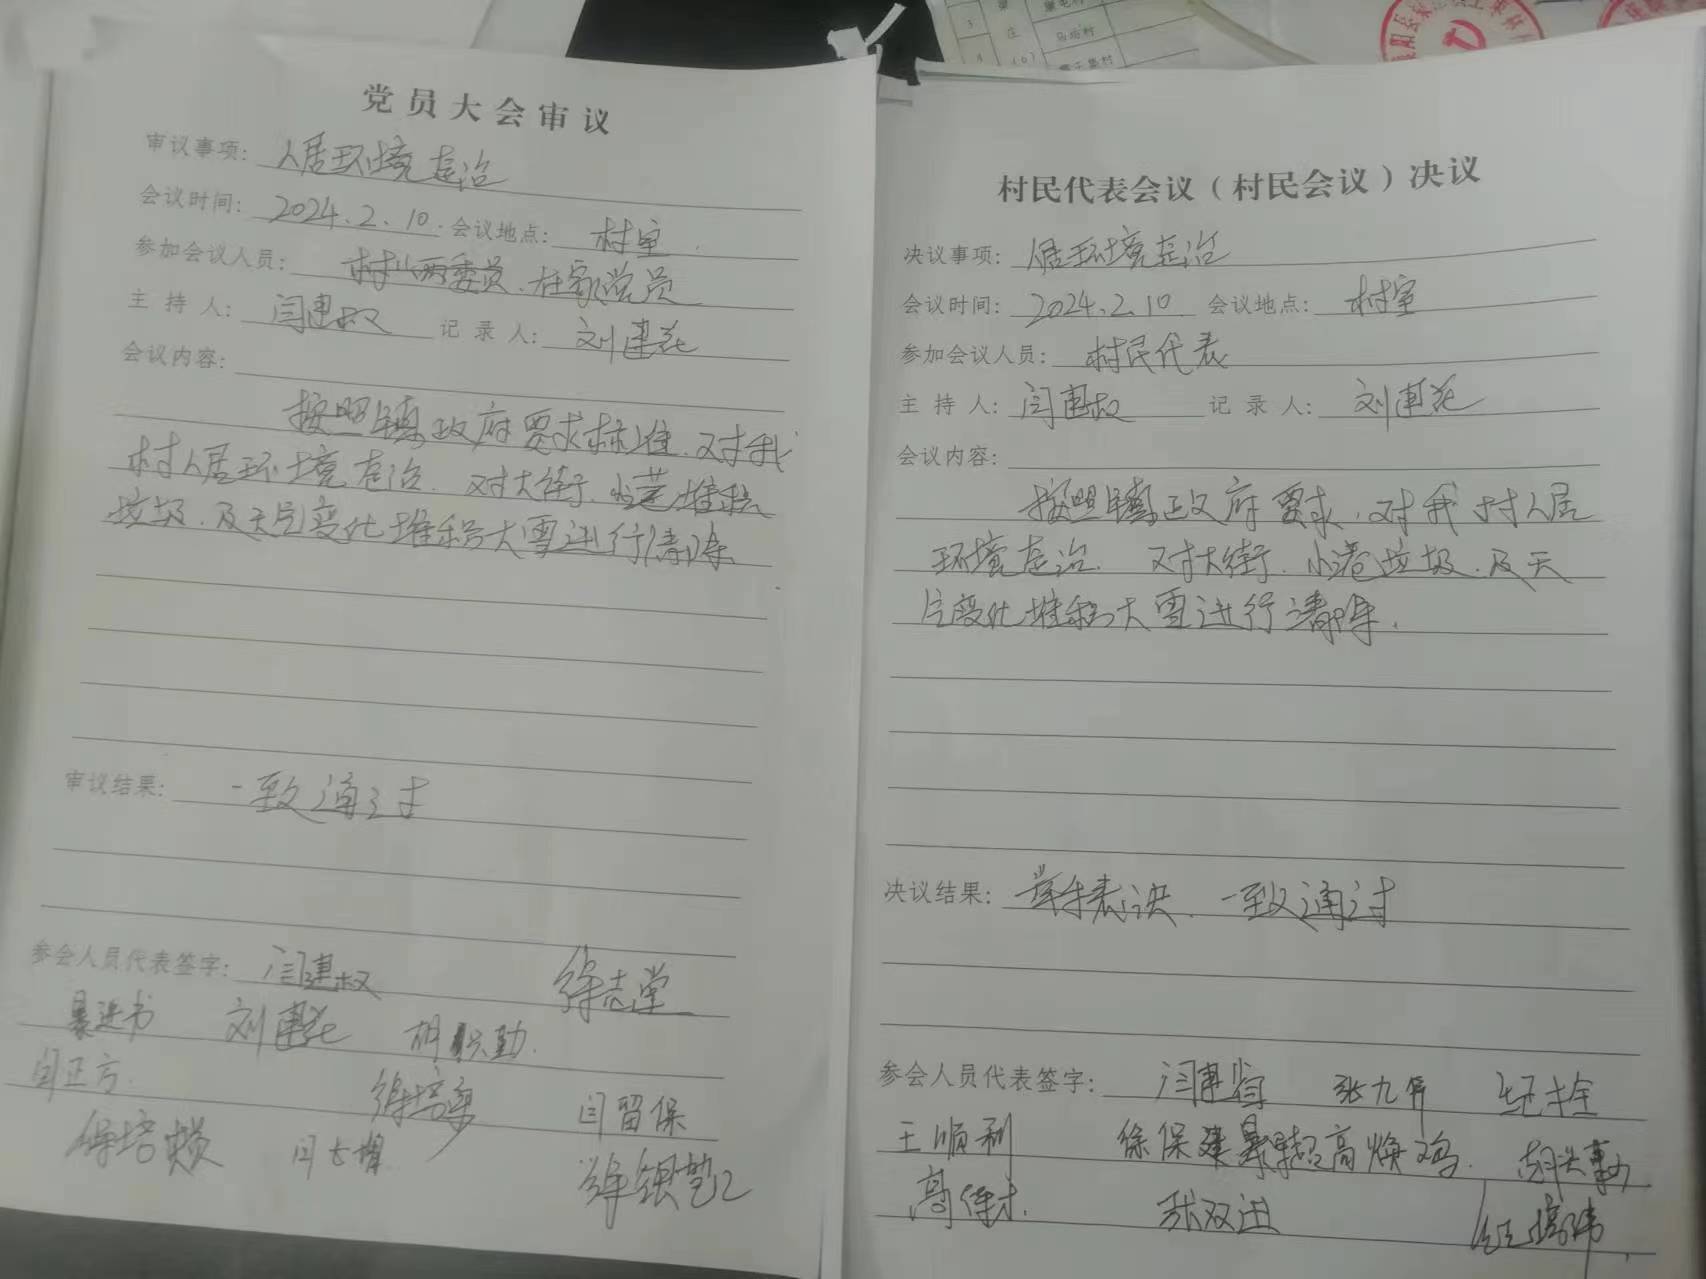 党员大会审议
审议事项: 人居环境整治
会议时间: 2024.2.10. 会议地点: 村室
参加会议人员: 村两委员、在家党员
主持人: 闫建叔 记录人: 刘建花
会议内容:
按照镇政府要求标准、对我
村人居环境整治. 对大街、小巷堆积
垃圾、及天气变化堆积大雪进行清除
审议结果: 一致通过
参会人员代表签字: 闫建叔 徐志堂
暴进书 刘建花 胡兴勤.
闫正方. 徐培 闫留保
徐培
村民代表会议(村民会议)决议
决议事项: 人居环境整治
会议时间: 2024.2.10 会议地点: 村室
参加会议人员: 村民代表
主持人: 闫建叔 记录人: 刘建花
会议内容:
按照镇政府要求、对我村人居
环境整治. 对大街、小巷垃圾、及天
气变化堆积大雪进行清除.
决议结果: 举手表决、一致通过
参会人员代表签字: 张九
王顺利 徐保建 高焕鸡.
张双进
3
庄
马坊村